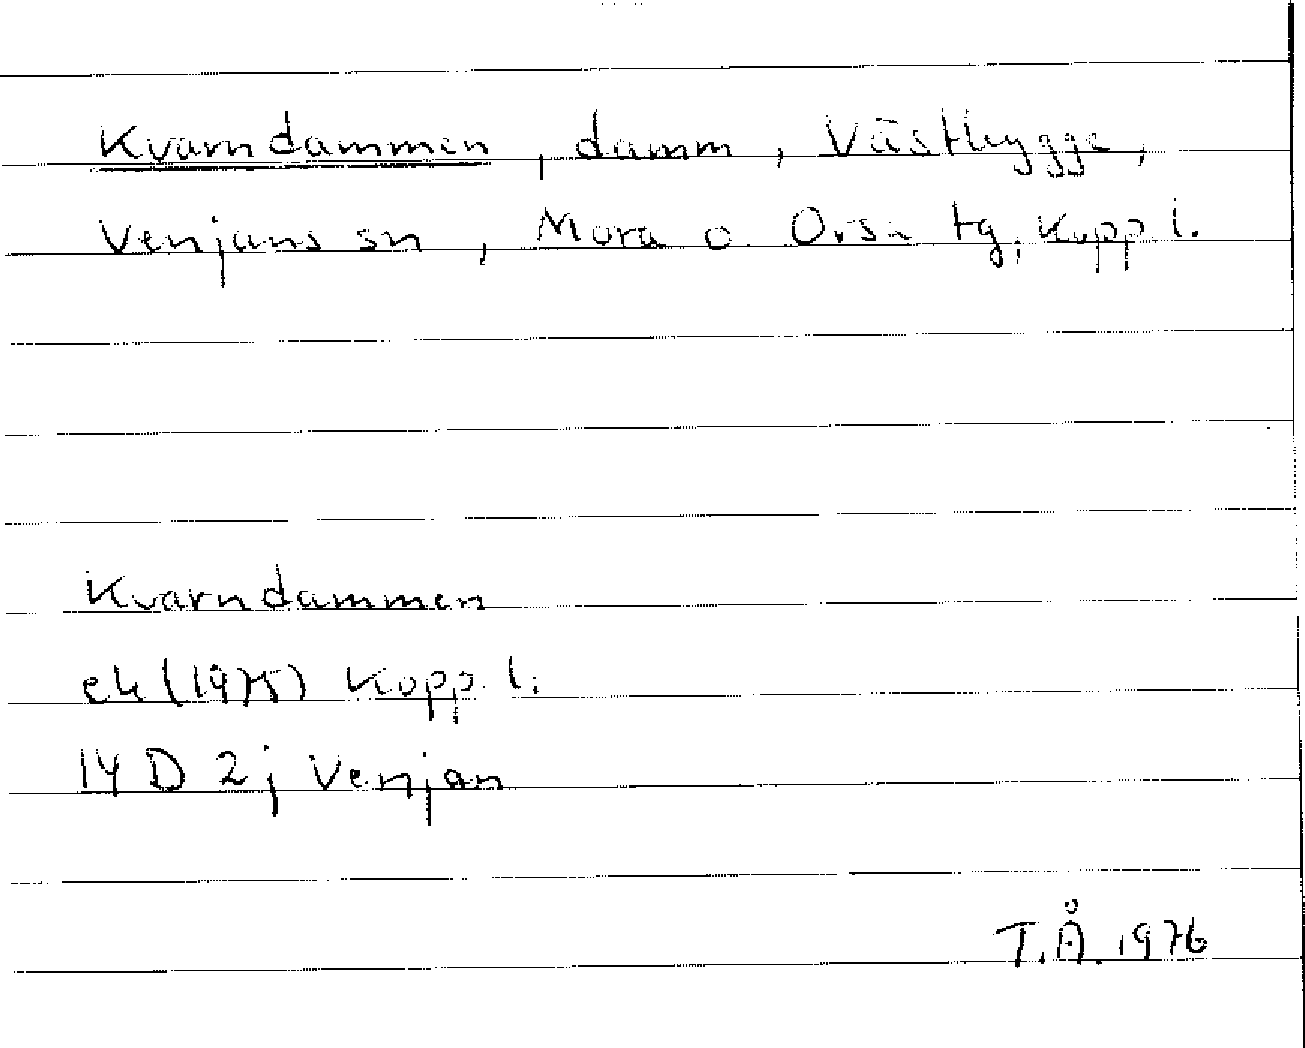 Kvarndammen, damm, Västbygge,
Venjans sn, Mora o. Orsa tg, Kopp l.
Kvarndammen
ek (1975) Kopp. l.
14 D 2j Venjan
T.Å. 1976